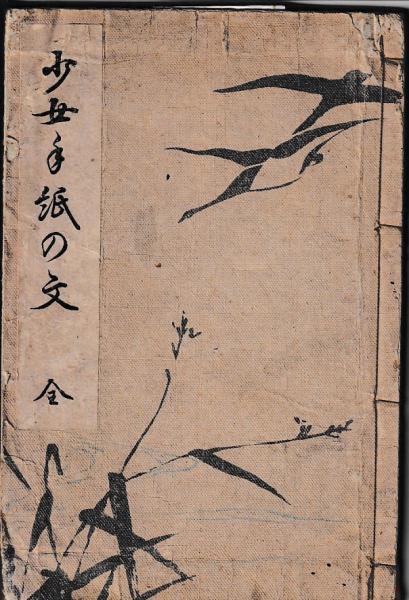 少女手紙の文 全